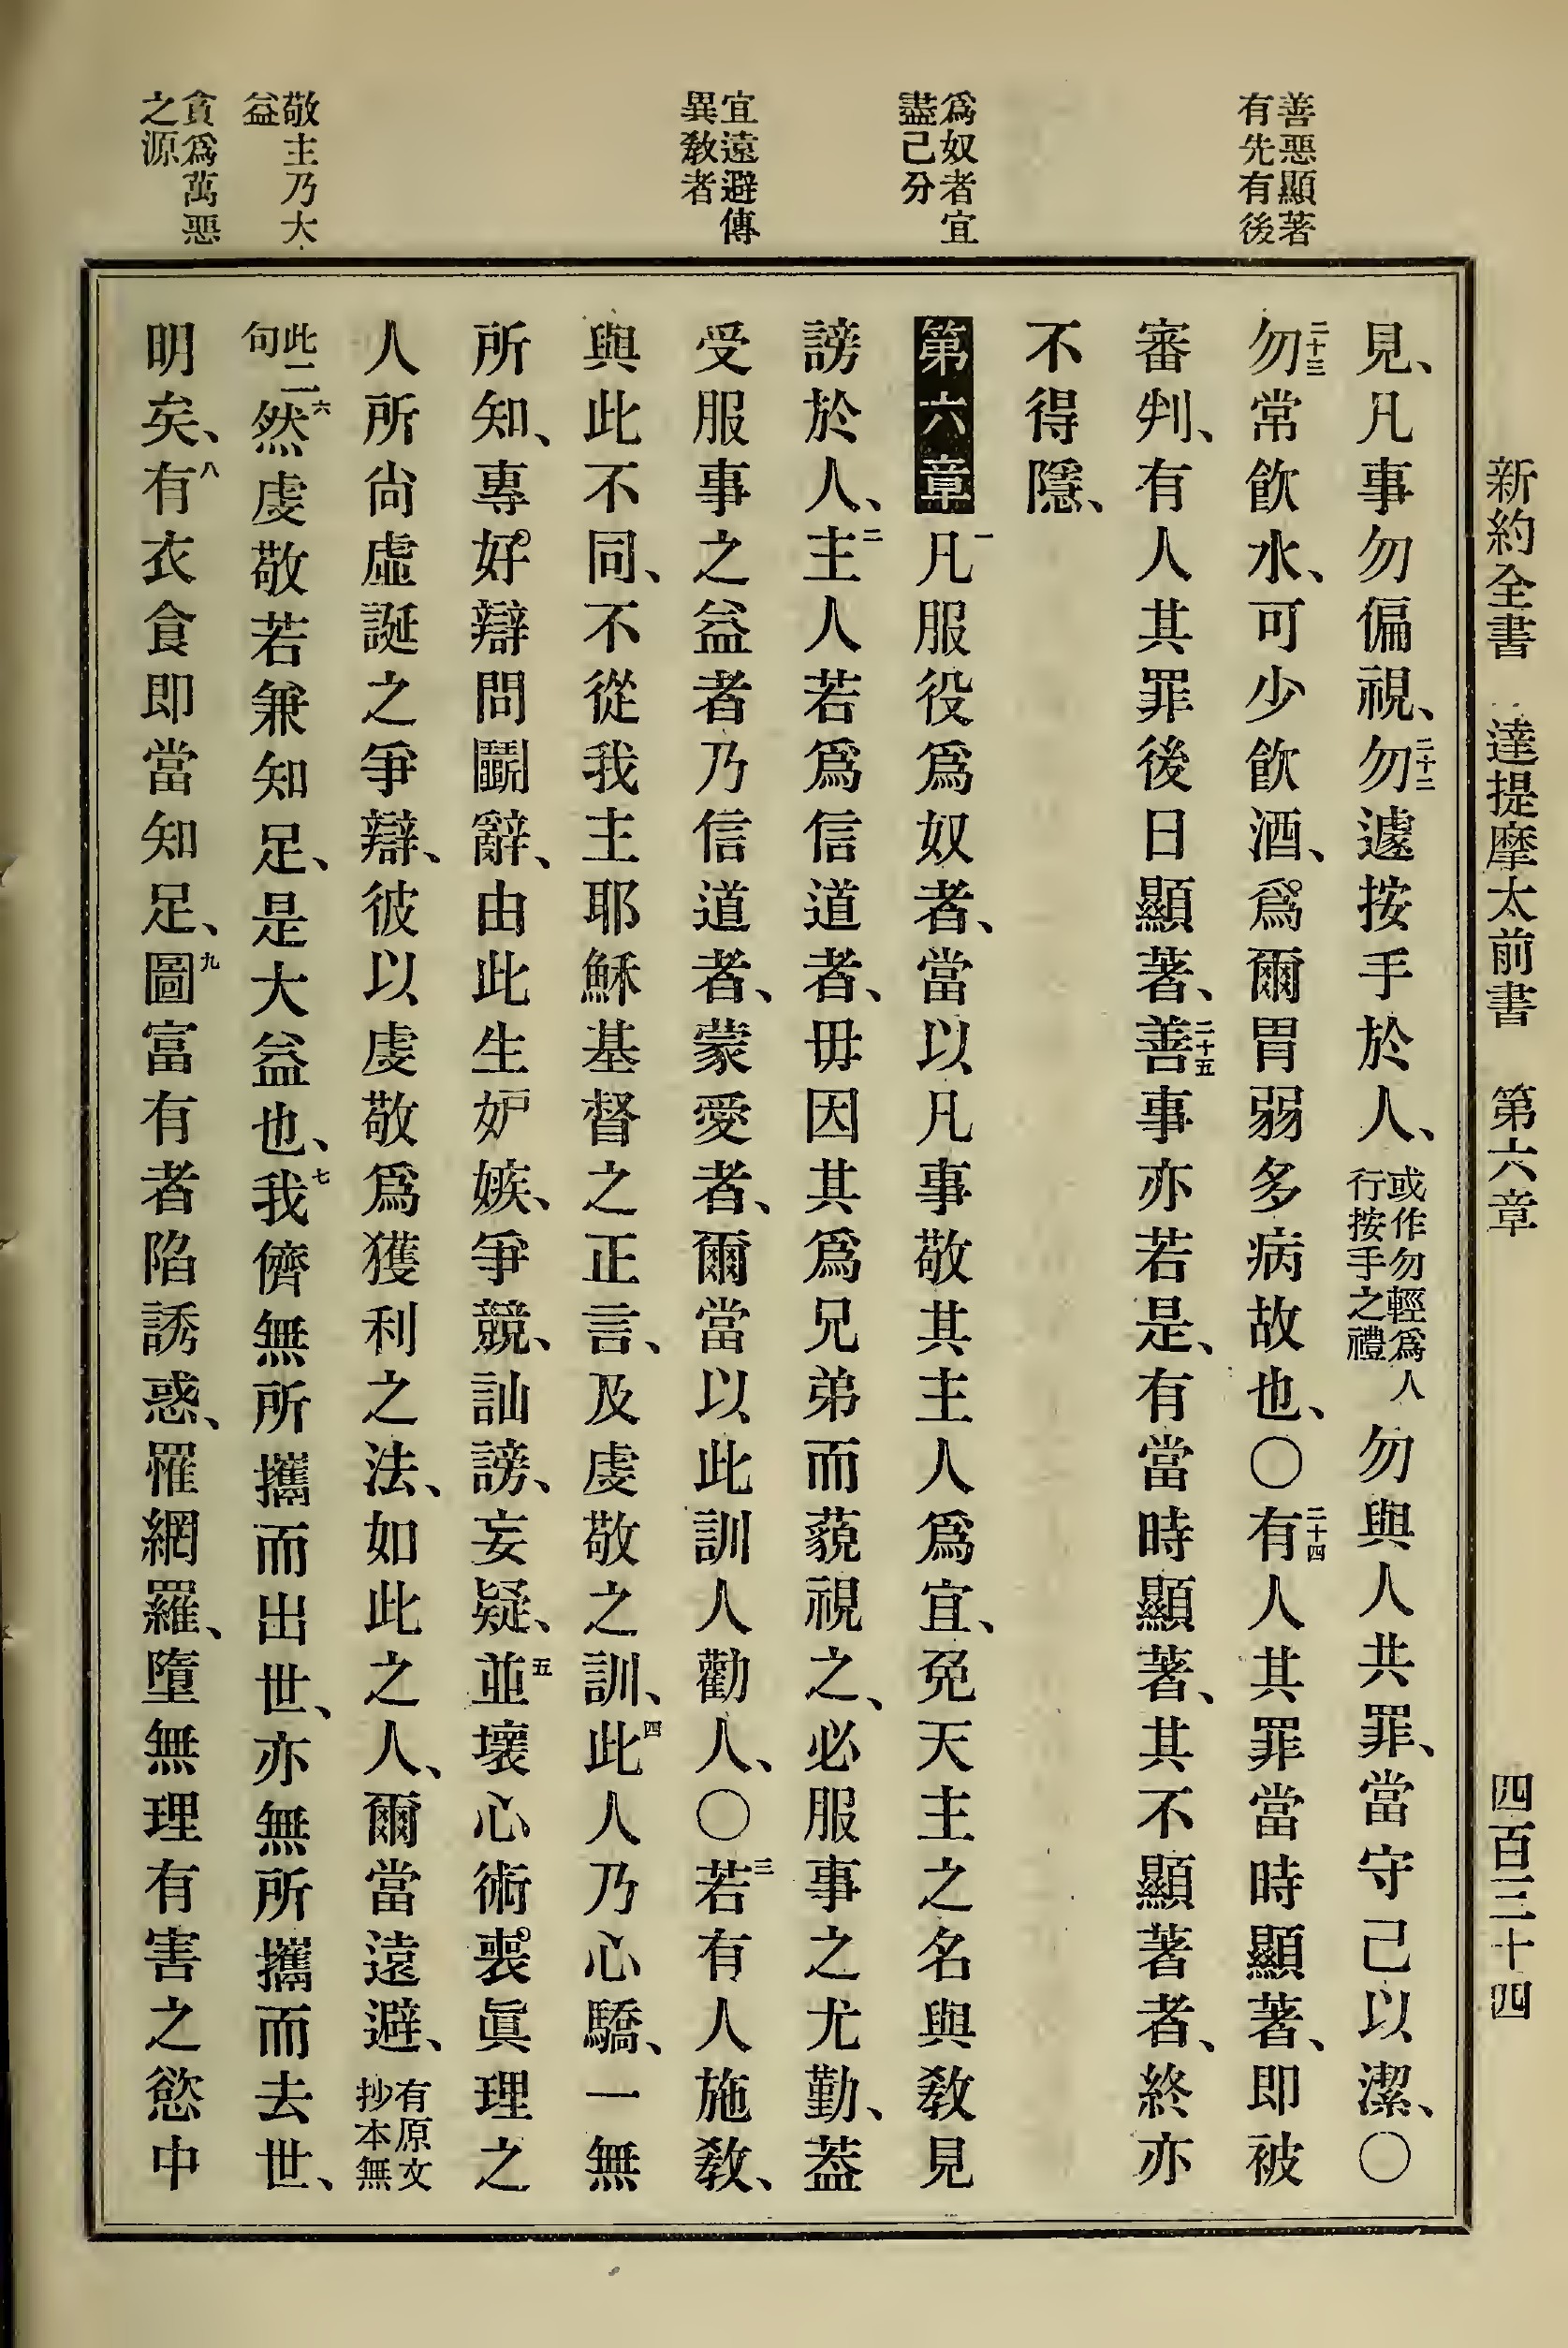 新約全書 達提摩太前書 第六章 四百三十四
善惡顯著
有先有後
爲奴者宜
盡己分
宜遠避傳
異教者
敬主乃大
益
貪爲萬惡
之源
見、凡事勿偏視、二十二勿遽按手於人、或作勿輕爲人行按手之禮勿與人共罪、當守己以潔、〇
二十三勿常飮水、可少飮酒、爲爾胃弱多病故也、〇二十四有人其罪當時顯著、即被
審判、有人其罪後日顯著、二十五善事亦若是、有當時顯著、其不顯著者、終亦
不得隱、
第六章 一凡服役爲奴者、當以凡事敬其主人爲宜、免天主之名與教見
謗於人、二主人若爲信道者、毋因其爲兄弟而藐視之、必服事之尤勤、蓋
受服事之益者乃信道者、蒙愛者、爾當以此訓人勸人、〇三若有人施教、
與此不同、不從我主耶穌基督之正言、及虔敬之訓、四此人乃心驕、一無
所知、專好辯問鬭辭、由此生妒嫉、爭競、訕謗、妄疑、五並壞心術喪眞理之
人所尙虛誕之爭辯、彼以虔敬爲獲利之法、如此之人、爾當遠避、有原文抄本無
此二句六然虔敬若兼知足、是大益也、七我儕無所攜而出世、亦無所攜而去世、
明矣、八有衣食即當知足、九圖富有者陷誘惑、罹網羅、墮無理有害之慾中